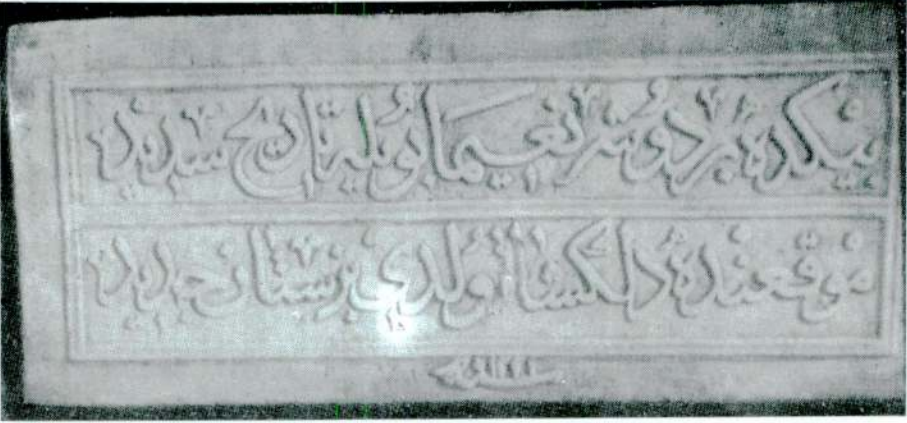 بيكده بر دوشر نعيما بويله تاريخ سديد
موقعنده دلكشا اولدي دبستان جديد
سنه